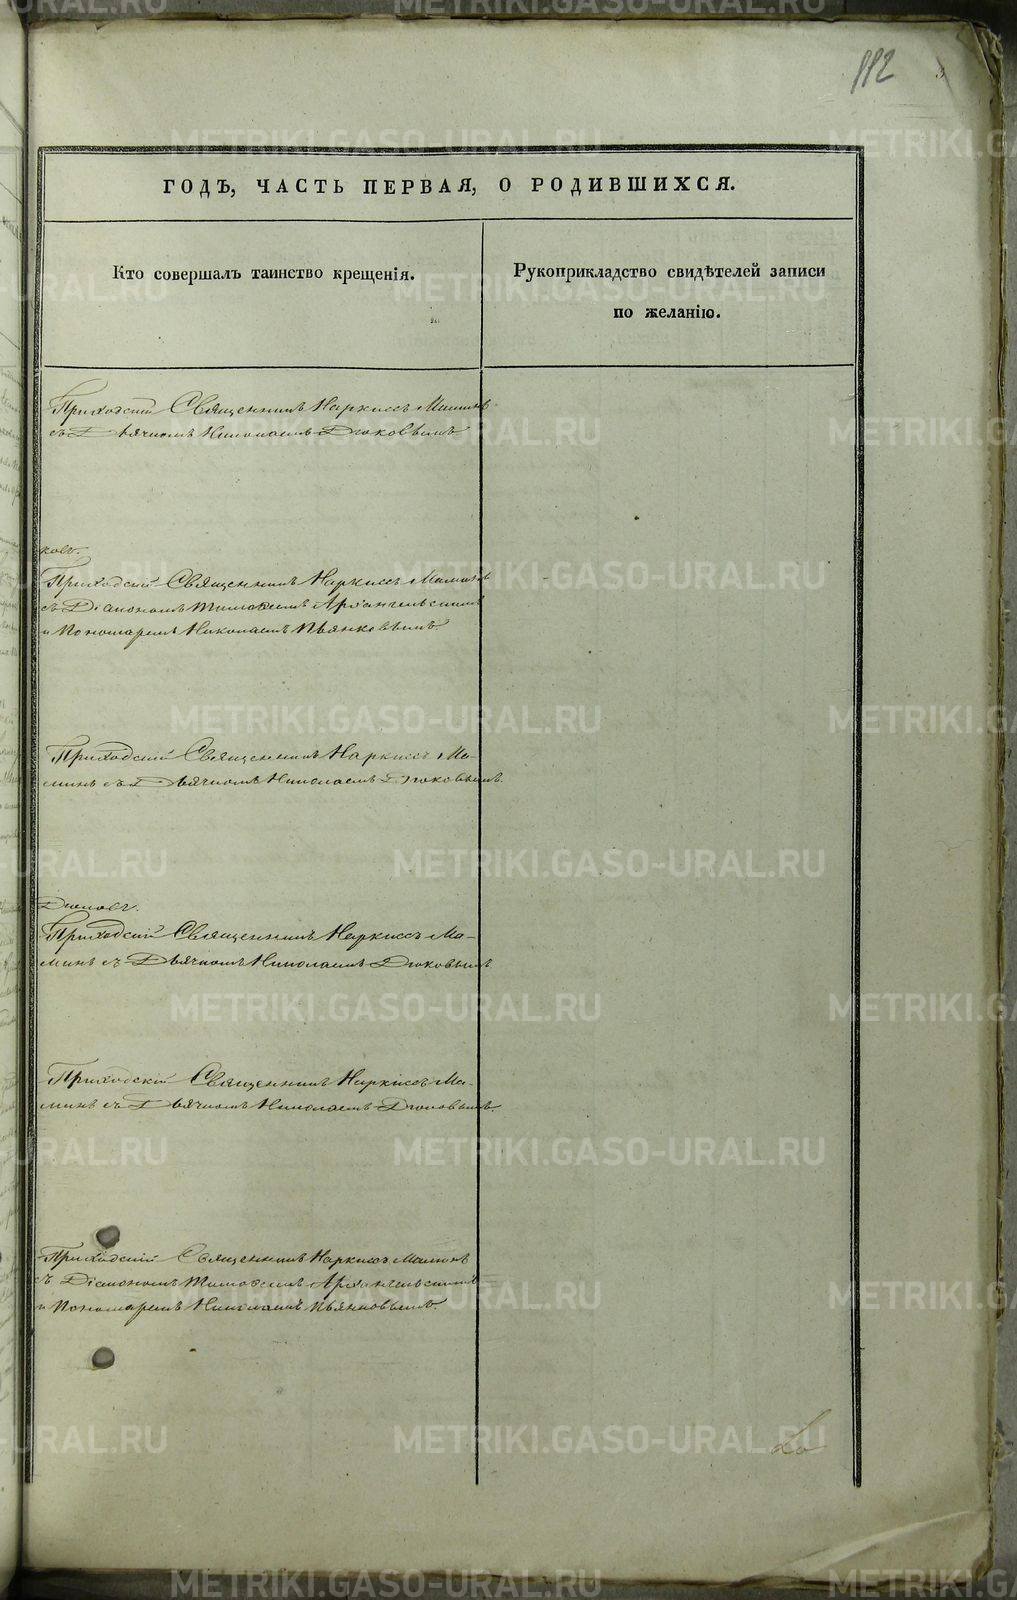 112
3
ГОДЪ, ЧАСТЬ ПЕРВАЯ, О РОДИВШИХСЯ.
Кто совершалъ таинство крещенія.
Рукоприкладство свидѣтелей записи
по желанію.
Приходскій Священникъ Наркиссъ Маминъ
съ Дьячкомъ Николаемъ Дюковымъ.
ковъ.
Приходскій Священникъ Наркиссъ Маминъ
съ Діакономъ Тимоѳеемъ Архангельскимъ
и Пономаремъ Николаемъ Пьянковымъ.
Приходскій Священникъ Наркиссъ Ма-
минъ съ Дьячкомъ Николаемъ Дюковымъ.
Приходскій Священникъ Наркиссъ Ма-
минъ съ Дьячкомъ Николаемъ Дюковымъ
Приходскій Священникъ Наркиссъ Ма-
минъ съ Дьячкомъ Николаемъ Дюковымъ.
Приходскій Священникъ Наркиссъ Маминъ
съ Діакономъ Тимоѳеемъ Архангельскимъ
и Пономаремъ Николаемъ Пьянковымъ.
METRIKI.GASO-URAL.RU